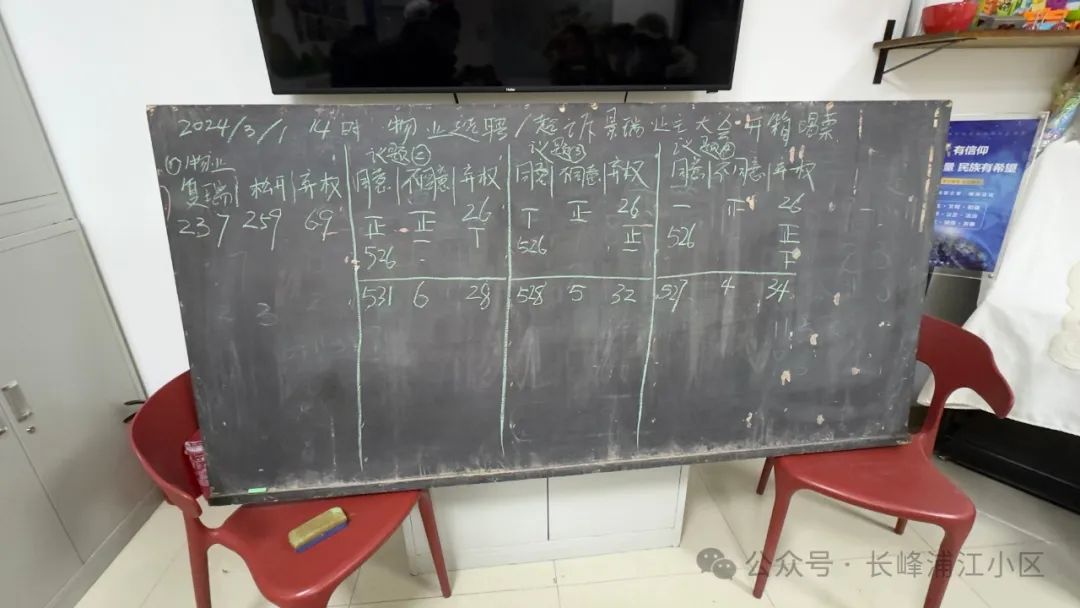 2024/3/1 14时 物业选聘/起诉景瑞业主大会开箱唱票
①物业
复瑞 松月 弃权
237 259 69
议题②
同意 不同意 弃权
正 正 26
526 一 丅
531 6 28
议题③
同意 不同意 弃权
丅 正 26
526 正
528 5 32
议题④
同意 不同意 弃权
一 26
526 正
下
527 4 34
Haier
有信仰
量 民族有希望
公众号·长峰浦江小区